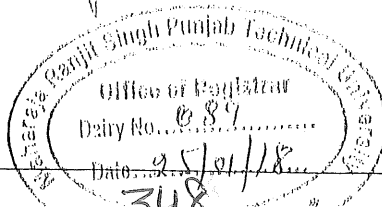 Maharaja Ranjit Singh Punjab Technical University
Office of Registrar
Dairy No. 889
Date 25/01/18
348